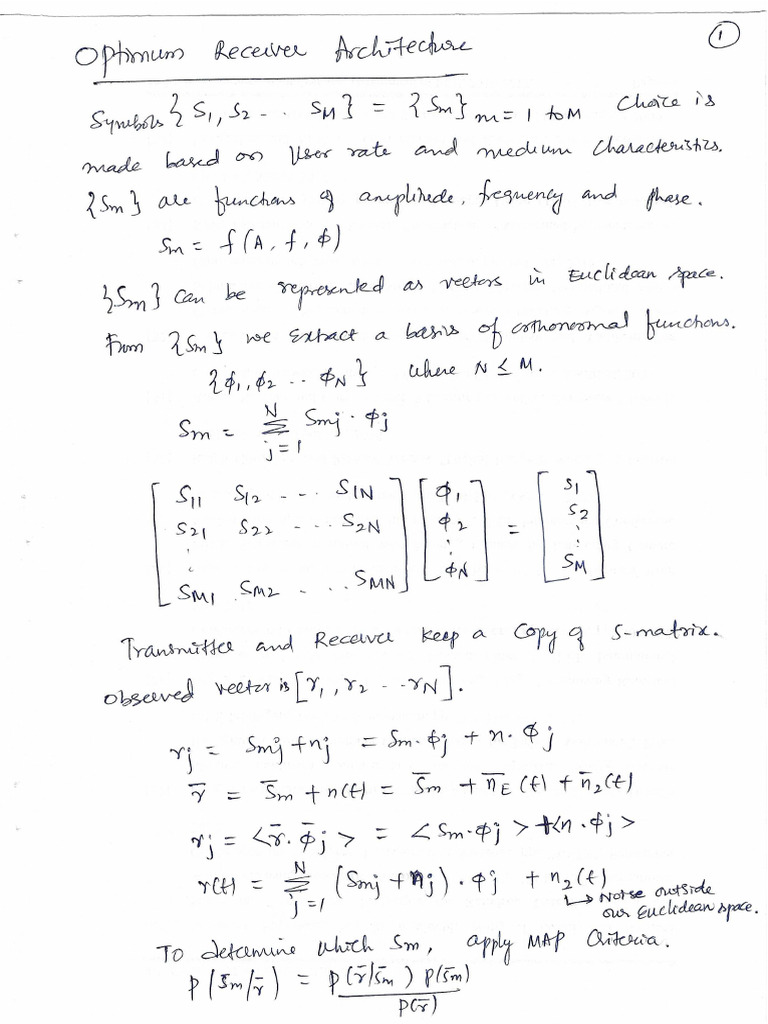 ①
Optimum Receiver Architecture
Symbols { S1, S2 - . . SM } = { Sm } m = 1 to M Choice is
made based on User rate and medium Characteristics.
{ Sm } are functions of amplitude, frequency and phase.
Sm = f(A, f, ϕ)
{ Sm } can be represented as vectors in Euclidean space.
From { Sm } we Extract a basis of orthonormal functions.
{ ϕ1, ϕ2 .. ϕN } where N ≤ M.
Sm = N Σ j=1 Smj · ϕj
[ S11 S12 - - - . S1N ] [ ϕ1 ] [ S1 ]
[ S21 S22 - - . . . S2N ] [ ϕ2 ] = [ S2 ]
[ ⋮ ] [ ⋮ ] [ ⋮ ]
[ SM1 SM2 - . . . SMN ] [ ϕN ] [ SM ]
Transmitter and Receiver keep a Copy of S-matrix.
Observed vector is [ r1, r2 - - rN ].
rj = Smj + nj = Sm · ϕj + n · ϕj
r̄ = S̄m + n(t) = S̄m + n̄E (t) + n̄2(t)
rj = < r̄ · ϕ̄j > = < Sm · ϕj > + < n · ϕj >
r(t) = N Σ j=1 (Smj + nj) · ϕj + n2(t)
↳ Noise outside
our Euclidean space.
To determine which Sm, apply MAP Criteria.
P(S̄m/r̄) = P(r̄/S̄m) P(S̄m)
P(r̄)